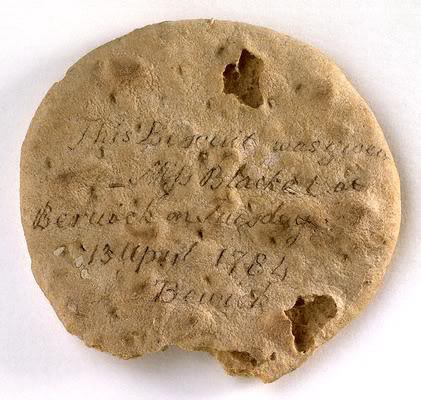 This Biscuit was given
- Miss Blacket at
Berwick on Tuesday
13 April 1784
Berwick